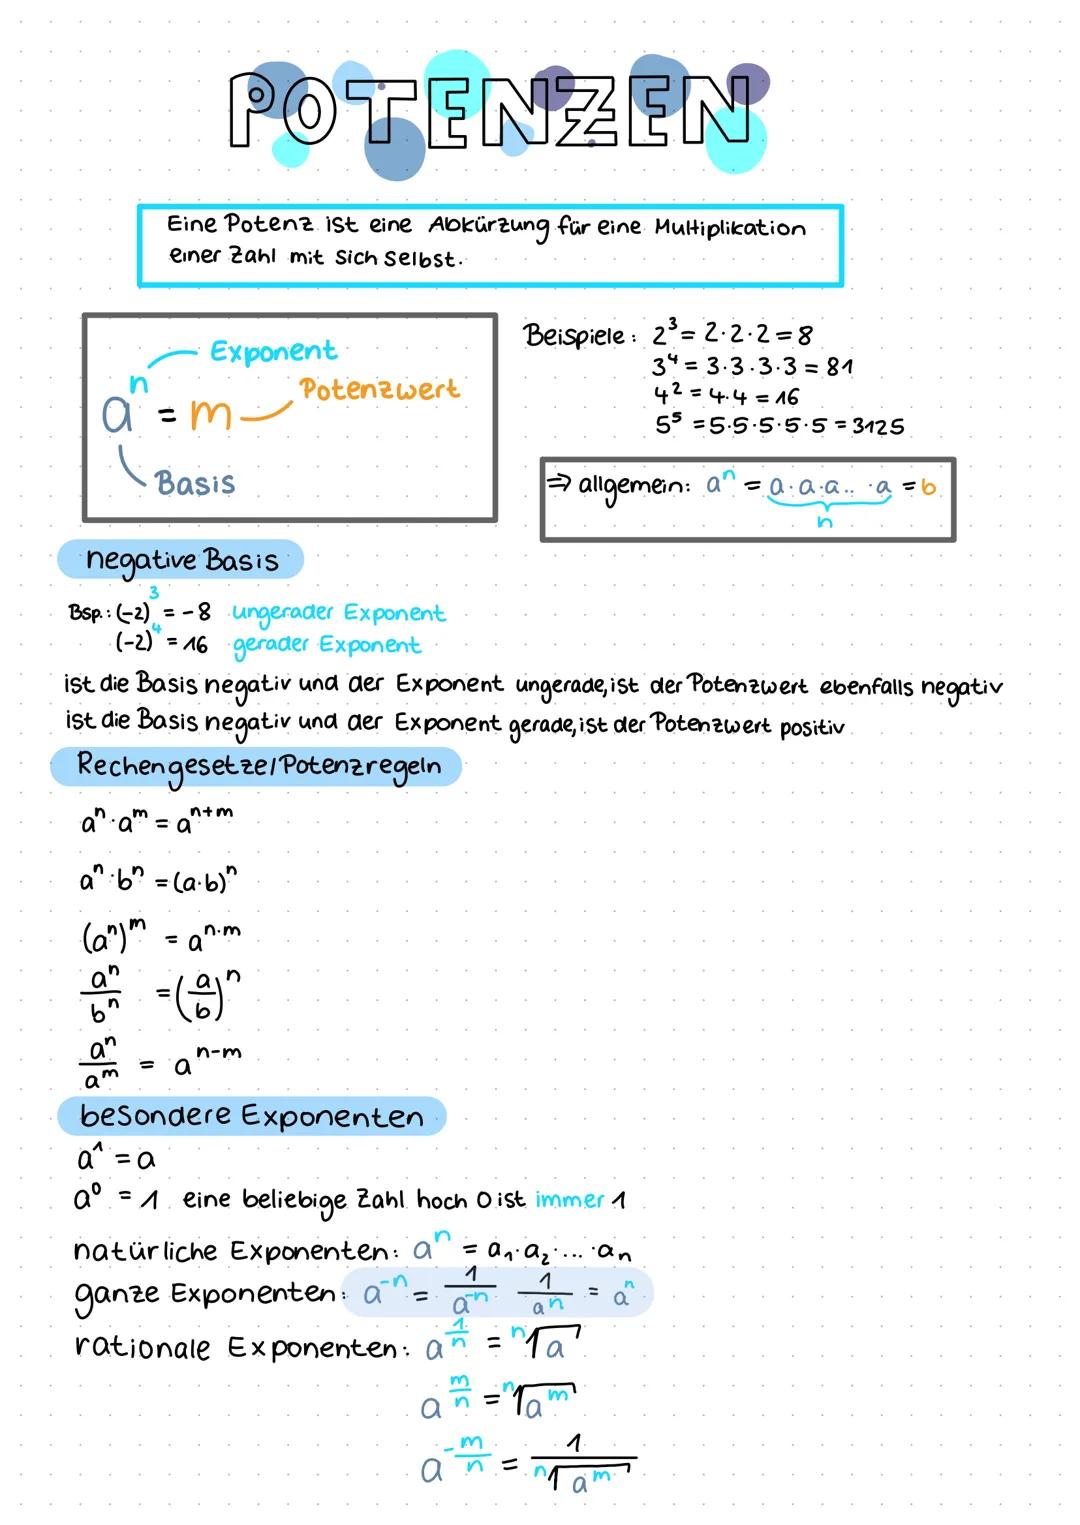 POTENZEN
Eine Potenz ist eine Abkürzung für eine Multiplikation
einer Zahl mit sich selbst.
Exponent
aⁿ = m
Potenzwert
Basis
Beispiele: 2³ = 2·2·2 = 8
3⁴ = 3·3·3·3 = 81
4² = 4·4 = 16
5⁵ = 5·5·5·5·5 = 3125
⇒ allgemein: aⁿ = a·a·a.. ·a = b
n
negative Basis
Bsp.: (-2)³ = -8 ungerader Exponent
(-2)⁴ = 16 gerader Exponent
ist die Basis negativ und der Exponent ungerade, ist der Potenzwert ebenfalls negativ
ist die Basis negativ und der Exponent gerade, ist der Potenzwert positiv
Rechengesetze/Potenzregeln
aⁿ·aᵐ = aⁿ⁺ᵐ
aⁿ·bⁿ = (a·b)ⁿ
(aⁿ)ᵐ = a^(n·m)
aⁿ/bⁿ = (a/b)ⁿ
aⁿ/aᵐ = aⁿ⁻ᵐ
besondere Exponenten
a¹ = a
a⁰ = 1 eine beliebige Zahl hoch 0 ist immer 1
natürliche Exponenten: aⁿ = a₁·a₂·... ·aₙ
ganze Exponenten: a⁻ⁿ = 1/a⁻ⁿ 1/aⁿ = aⁿ
rationale Exponenten: a^(1/n) = ⁿ√a
a^(m/n) = ⁿ√aᵐ
a^(-m/n) = 1/ⁿ√aᵐ